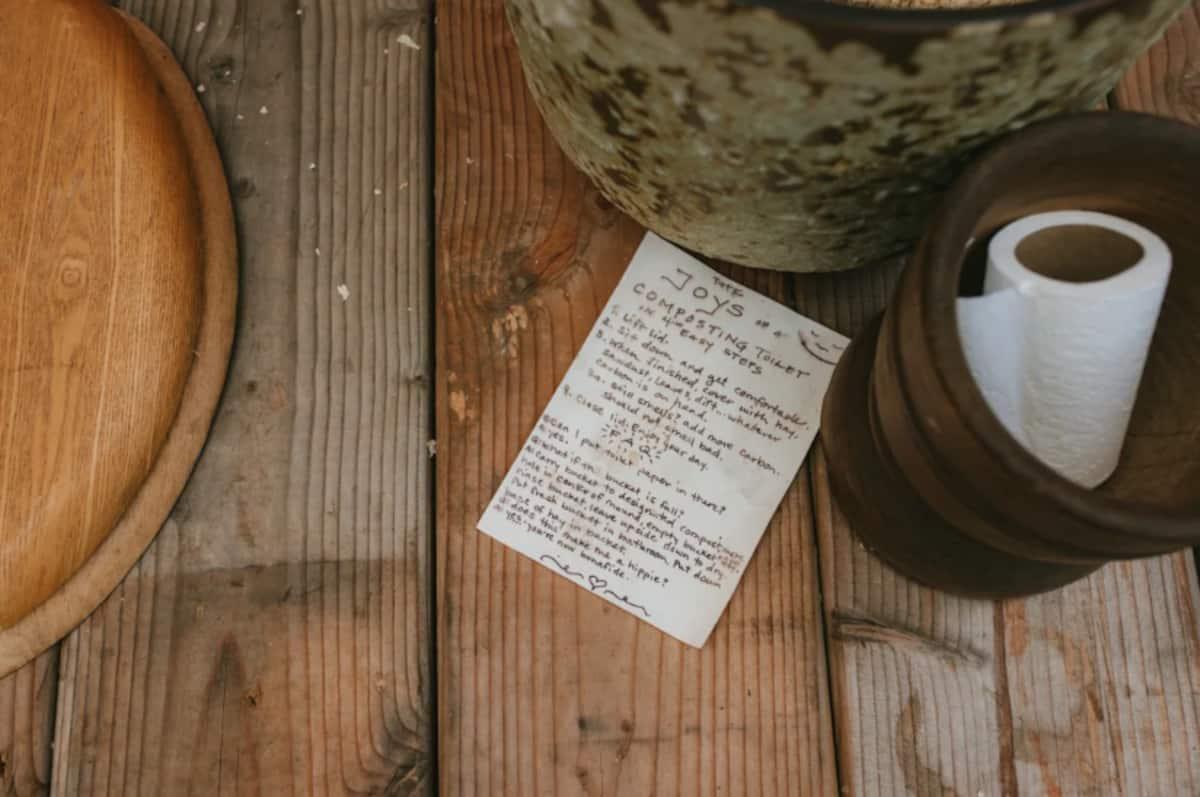 THE
JOYS OF A
COMPOSTING TOILET
IN 4 EASY STEPS
1. Lift lid.
2. Sit down and get comfortable.
3. When finished, cover with hay,
sawdust, leaves, dirt... whatever
carbon is on hand.
3a. Still smells? add more carbon.
should not smell bad.
4. Close lid. Enjoy your day.
FAQ
Can I put toilet paper in there?
Yes.
What if the bucket is full?
Carry bucket to designated compost,
hole in center of mound, empty bucket
rinse bucket, leave upside down to dry.
Put fresh bucket in bathroom. Put down
of hay in bucket.
Does this make me a hippie?
Yes. you're now bonafide.